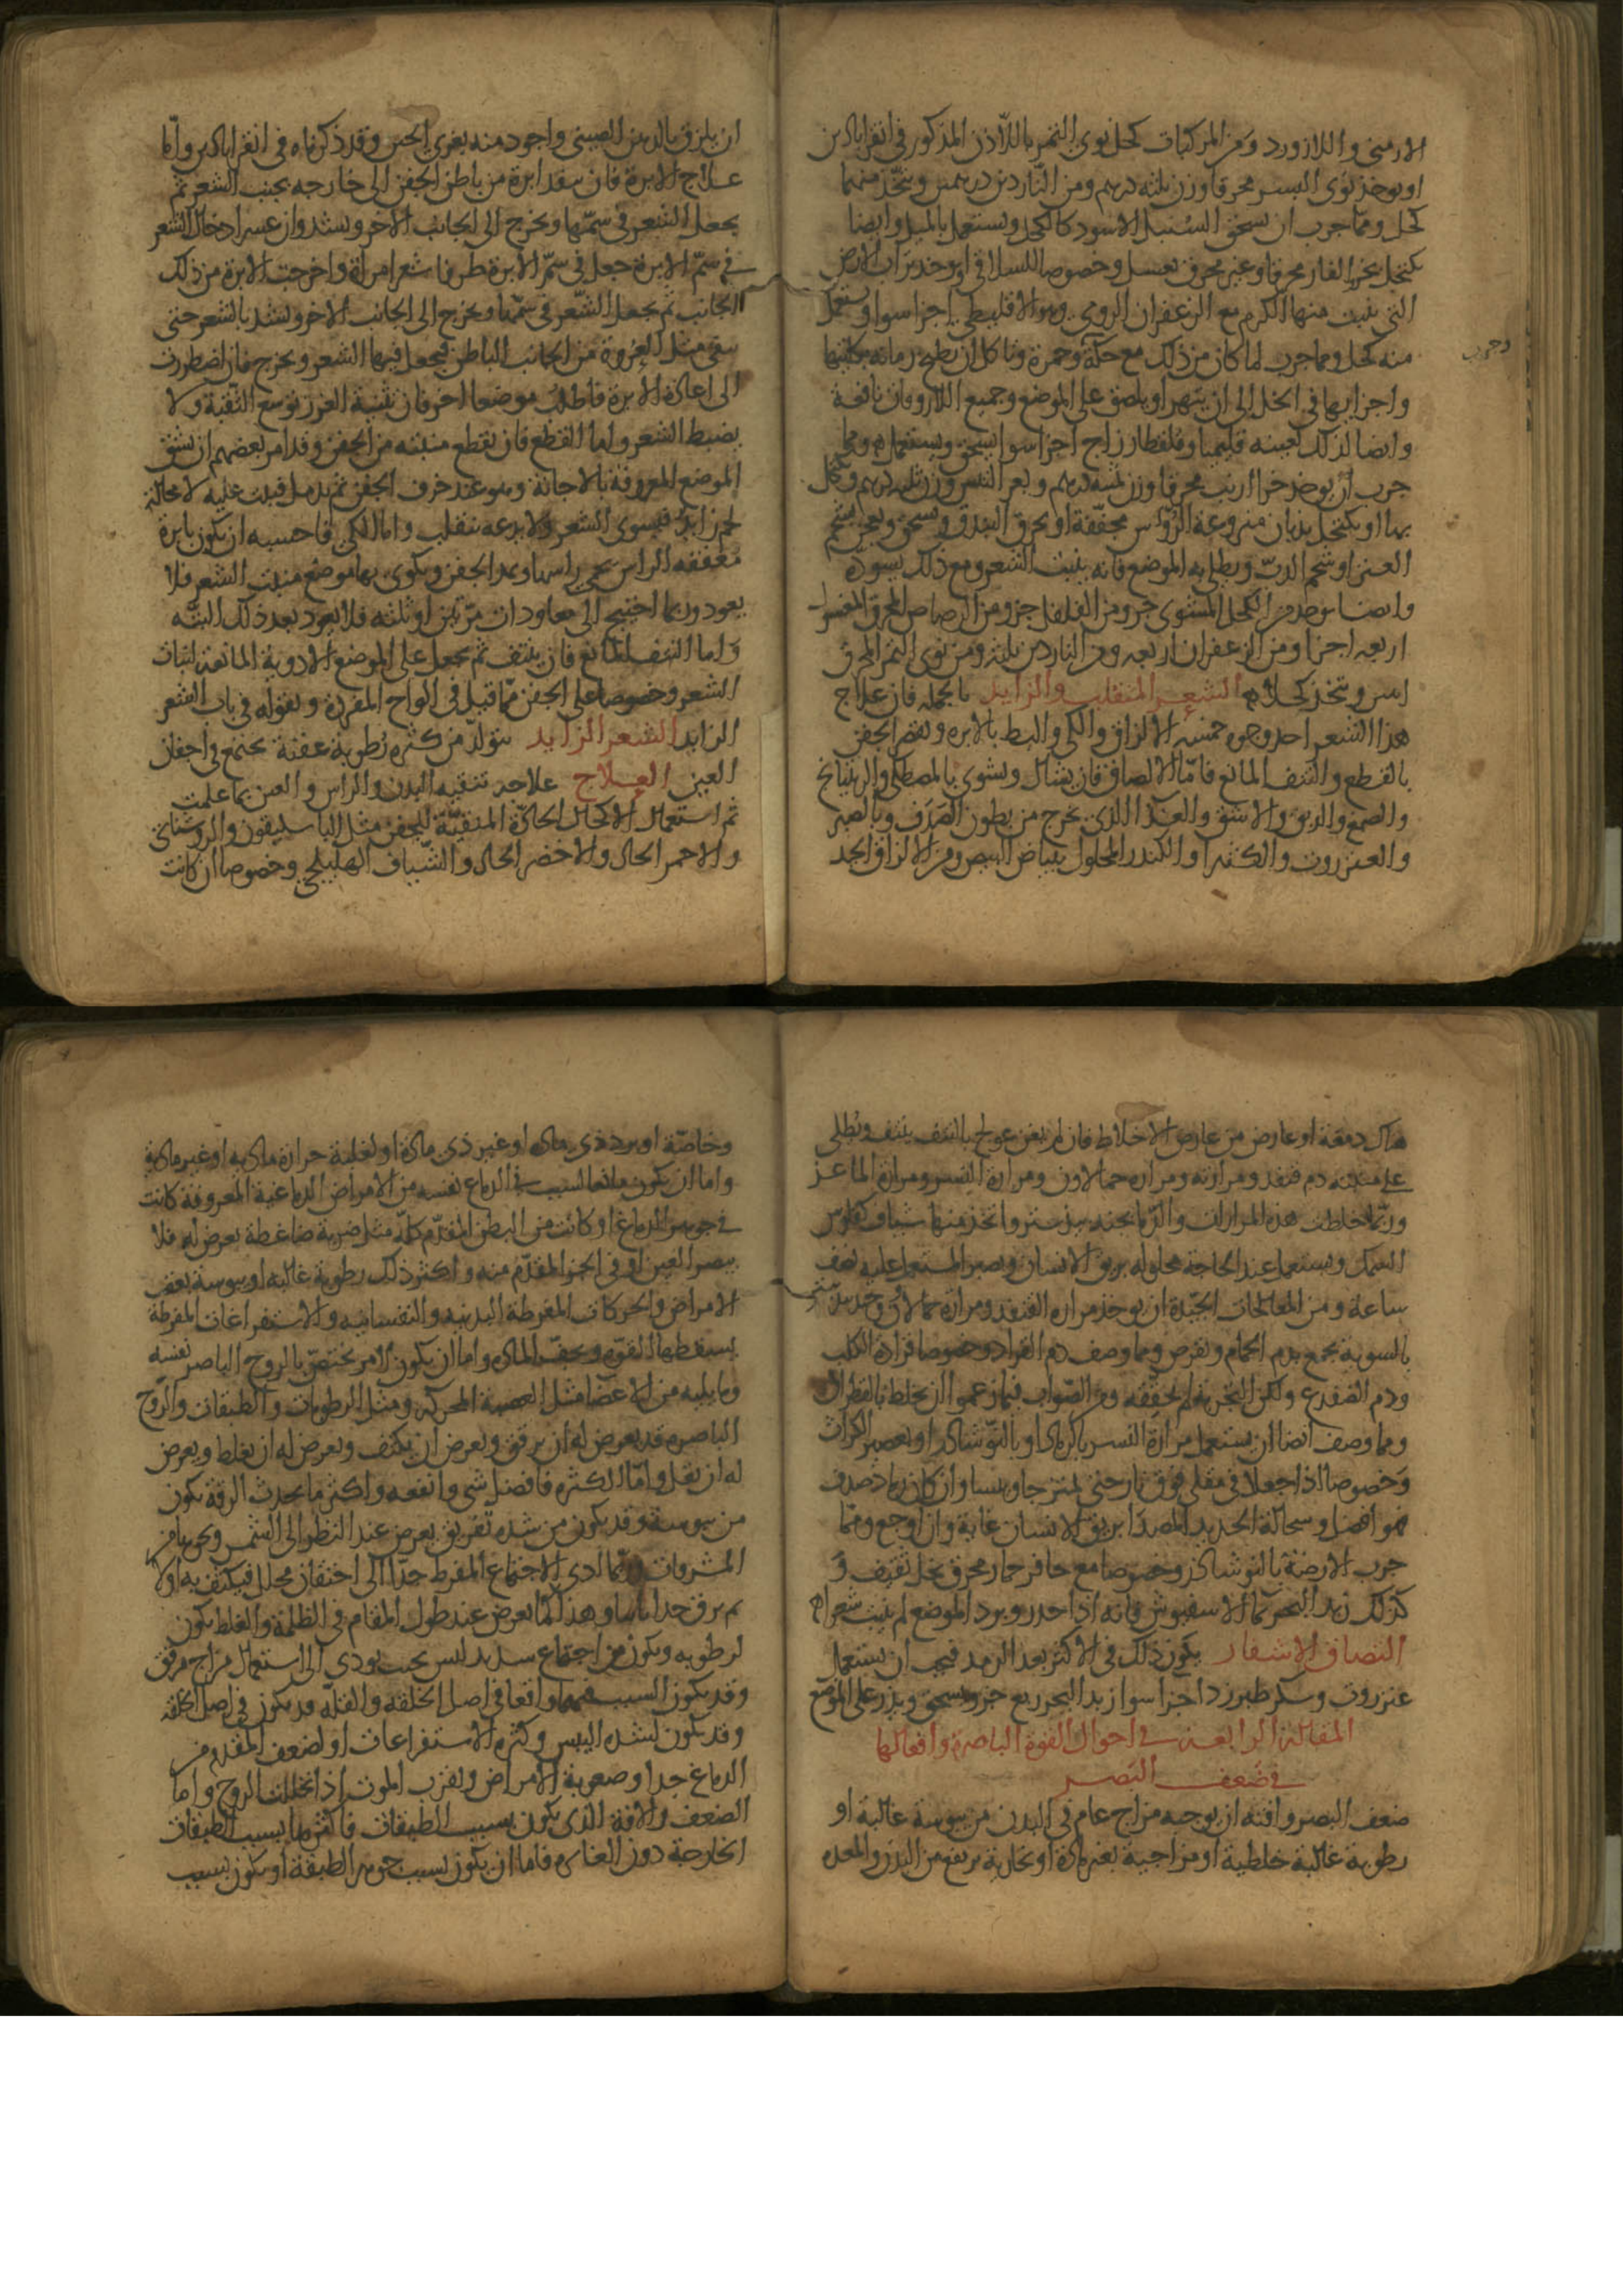 الارمنى واللازورد ومن المركبات كحل نوى التمر باللاذن المذكور فى اقراباذين
او يوخذ نوى البسر محرقا وزن ثلثه درهم ومن الناردين درهمين ويتخذ منهما
كحل ومما جرب ان يسحق السنبل الاسود كالكحل ويستعمل بالميل وايضا
يكتحل بخرء الفار محرقا وغير محرق بعسل وخصوصا للسلاقى او يوخذ تراب الارض
التى ينبت منها الكرم مع الزعفران الرومى وهو الاقليطى اجزا سوا ويستعمل
منه كحل ومما جرب لما كان من ذلك مع حكة وحمرة وتاكل ان يطبخ رمانه بكليتها
واجزايها فى الخل الى ان يتهرا ويلصق على الموضع وجميع اللازوقات نافعة
وايضا لذلك بعينه قليميا وقلقطار زاج اجزا سوا يسحق ويستعمل ومما
جرب ان يوخذ خرا ارنب محرقا وزن ثلثه درهم وبعر التيس وزن ثلثه درهم ويكحل
بها او يكتحل بذبان منزوعة الروس مجففة او يحرق البندق ويسحق ويعجن بشحم
العنز او شحم الدب ويطلى به الموضع فانه ينبت الشعر ومع ذلك يسوده
وايضا يوخذ من الكحل المشوى جزو ومن الفلفل جزو ومن الرصاص المحرق المغسول
اربعه اجزا ومن الزعفران اربعه ومن الناردين ثلثه ومن نوى التمر المحرق
اسن ويتخذ كحلا الشعر المنقلب والزايد بالجمله فان علاج
هذا الشعر احد وجوه خمسه الالزاق والكى والبط بالابره وقصر الجفن
بالقطع والنتف المانع فاما الالصاق فان يشال ويسوى بالمصطكى والريتيانج
والصمغ والدبق والاشق والغرا الذى يخرج من بطون الصدف وبالصبر
والعنزروت والكثيرا والكندر المحلول ببياض البيض ومن الالزاق الجيد
وجرب
ان يلزق بالدهن الصينى واجود منه بغرى الجبن وقد ذكرناه فى اقراباذين واما
علاج الابرة فان ينفذ ابرة من باطن الجفن الى خارجه بجنب الشعر ثم
يجعل الشعر فى سمها ويخرج الى الجانب الاخر ويشد وان عسر ادخال الشعر
فى سم الابرة جعل فى سم الابرة طرفا شعر امراة واخرجت الابرة من ذلك
الجانب ثم يجعل الشعر فى سمها ويخرج الى الجانب الاخر ويشد بالشعر حتى
يبقى مثل العروة من الجانب الباطن فيجعل فيها الشعر ويخرج فان اضطررت
الى اعادة الابرة فاطلب موضعا اخر فان تثنية الغرز توسع الثقبة ولا
يضبط الشعر واما القطع فان يقطع منبته من الجفن وقد امر بعضهم ان يشق
الموضع المعروفة بالاجانة وهو عند حرف الجفن ثم يدمل فينبت عليه لا محالة
لحم زايد فيسوى الشعر ولا يدعه ينقلب واما الكى فاحسنه ان يكون بابرة
معقفه الراس يحمى راسها ويمد الجفن ويكوى بها موضع منبت الشعر فلا
يعود وربما احتيج الى معاودات مرتين او ثلثه فلا يعود بعد ذلك البته
واما النتف المانع فان ينتف ثم يجعل على الموضع الادوية المانعة لنبات
الشعر وخصوصا على الجفن مما قيل فى الواح المفردة ونقوله فى باب الشعر
الزايد الشعر الزايد يتولد من كثره رطوبة عفنة تجتمع فى اجفان
العين العلاج علاجه تنقيه البدن والراس والعين بما علمت
ثم استعمال الاكحال الحادة المنقية للجفن مثل الباسليقون والروشنايى
والاحمر الحاد والاخضر الحاد والشياف الهليلجى وخصوصا ان كانت
هناك دمعة او عارض من عارض الاخلاط فان لم يغن عولج بالنتف ينتف ويطلى
على منبته دم قنفد ومرارته ومراره حمالاون ومرارة النسر ومرارة الماعز
وربما خلطت هذه المرارات والدما بجندبيدستر واتخذ منها شياف كفلوس
السمك ويستعمل عند الحاجة محلوله بريق الانسان ويصبر المستعمل عليه نصف
ساعة ومن المعالجات الجيدة ان يوخذ مرارة القنفد ومرارة حمالاون وجندبيدستر
بالسوية يجمع بدم الحمام ويقرص ومما وصف دم القراد وخصوصا قراد الكلب
ودم الضفدع ولكن التجربة لم يحققه ومن الصواب فيما زعموا ان يخلط بالقطران
ومما وصف ايضا ان يستعمل مرارة النسر بالرماد او بالنوشادر او بعصير الكراث
وخصوصا اذا جعلا فى مقلى فوق نار حتى يمتزجا وييبسا وان كان رماد صدف
فهو افضل وسحالة الحديد المصدا بريق الانسان غاية وان اوجع ومما
جرب الارضة بالنوشادر وخصوصا مع حافر حمار محرق بخل ثقيف و
كذلك زبد البحر بما الاسفيوش فانه اذا حذر وبرد الموضع لم ينبت شعرا
التصاق الاشفار يكون ذلك فى الاكثر بعد الرمد فيجب ان يستعمل
عنزروت وسكر طبرزد اجزا سوا زبد البحر ربع جزو يسحق ويذر على الموضع
المقالة الرابعة فى احوال القوة الباصرة وافعالها
فى ضعف البصر
ضعف البصر وافته ان يوجبه مزاج عام فى البدن من يبوسة غالبة او
رطوبة غالبة خلطية او مزاجية بغير مادة او بخارية يرتفع من البدن والمعده
وخاصة او برد ذى ماده او غير ذى مادة او لغلبة حرارة مادية او غير مادية
واما ان يكون تابعا لسبب فى الدماغ نفسه من الامراض الدماغية المعروفة كانت
فى جوهر الدماغ او كانت فى البطن المقدم كله مثل ضربة ضاغطة يعرض له فلا
يبصر العين او فى الجزو المقدم منه واكثر ذلك رطوبة غالبه او يبوسة بعقب
الامراض والحركات المفرطة البدنيه والنفسانيه والاستفراغات المفرطة
يسقط لها القوه ويجف المادة واما ان يكون لامر يختص بالروح الباصر نفسه
وما يليه من الاعضا مثل العصبة المجوفه ومثل الرطوبات والطبقات والروح
الباصره قد يعرض له ان يرق ويعرض ان يكثف ويعرض له ان يغلظ ويعرض
له ان يقل واما الكثره فافضل شى وانفعه واكثر ما يحدث الرقة يكون
من يبوسة وقد يكون من شده تفريق يعرض عند النظر الى الشمس ونحوها من
المشرقات وربما ادى الاجتماع المفرط جدا الى احتقان محلل فيكثف به اولا
ثم يرق جدا ثانيا وهذا كما يعرض عند طول المقام فى الظلمة والغلظ يكون
لرطوبه ويكون من اجتماع شديد ليس بحيث يودى الى استعمال مزاج مرقق
وقد يكون السبب فيهما واقعا فى اصل الخلقه والقله قد يكون فى اصل الخلقه
وقد يكون لشده اليبس وكثره الاستفراغات او لضعف المقدم من
الدماغ جدا وصعوبة الامراض ولقرب الموت اذا تحللت الروح واما
الضعف والافة الذى يكون بسبب الطبقات فاكثرها بسبب الطبقات
الخارجة دون الغايره فاما ان يكون بسبب جوهر الطبقة او يكون بسبب